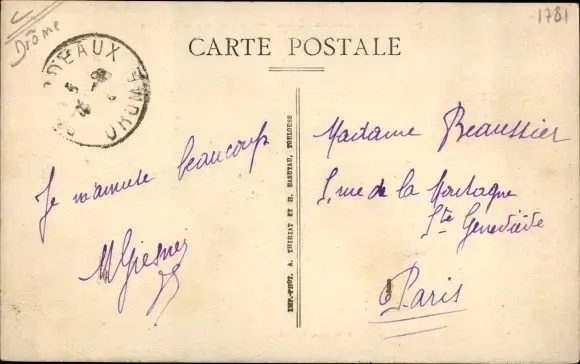 Drôme
1781
CARTE POSTALE
DROME
Je m'amuse beaucoup
Madame Beaussier
rue de la Montagne
Ste Geneviève
Paris
IMP.-PHOT. A. THIRIAT ET H. BASUYAU, TOULOUSE